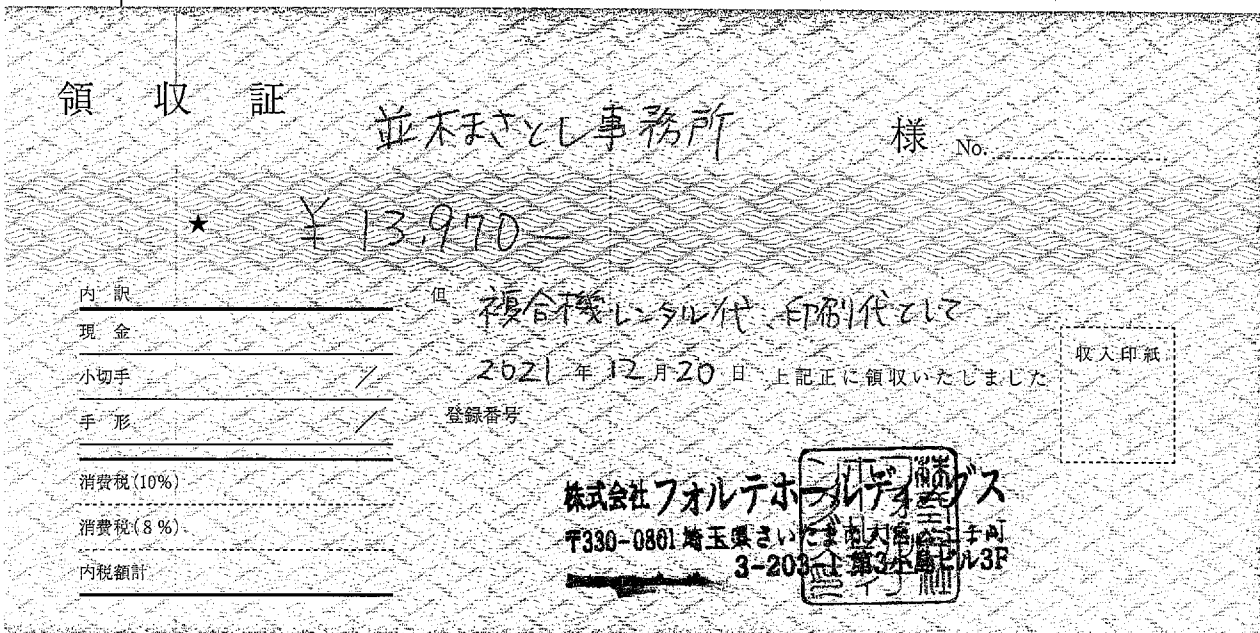 領収証
並木まさとし事務所 様 No.
★ ¥13,970-
内訳
現金
小切手 /
手形 /
消費税(10%)
消費税(8%)
内税額計
但 複合機レンタル代、印刷代として
2021年12月20日 上記正に領収いたしました
登録番号
収入印紙
株式会社フォルテホールディングス
〒330-0801 埼玉県さいたま市大宮区土手町
3-203-1 第3小島ビル3F